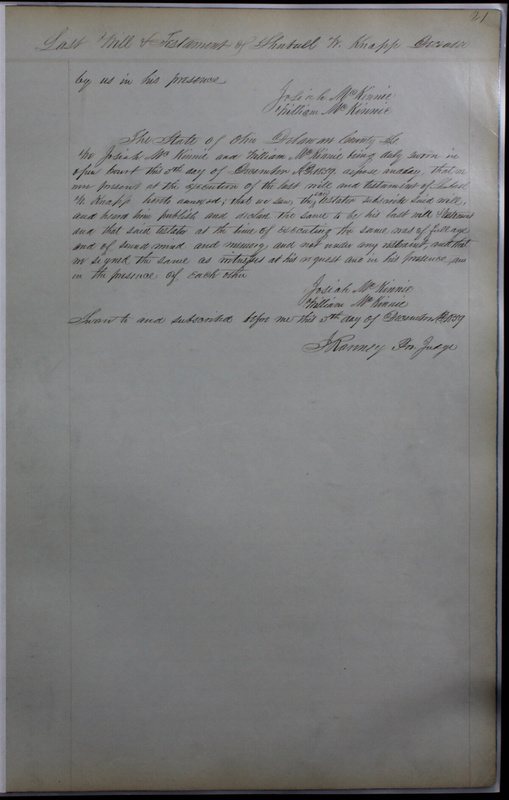 21
Last Will & Testament of Shubell W. Knapp Decease
by us in his presence
Josiah McKinnie
William McKinnie
The State of Ohio Delaware County ss
We Josiah McKinnie and William McKinnie being duly sworn in
open Court this 5th day of December AD 1859, depose and say, that we
were present at the execution of the last will and testament of Shubell
W. Knapp hereto annexed; that we saw, the said testator subscribe said will,
and heard him publish and declare the same to be his last will & Testament
and that said testator at the time of executing the same was of full age
and of sound mind and memory, and not under any restraint, and that
we signed the same as witnesses at his request and in his presence, and
in the presence of each other
Josiah McKinnie
William McKinnie
Sworn to and subscribed before me this 5th day of December AD 1859
Judge